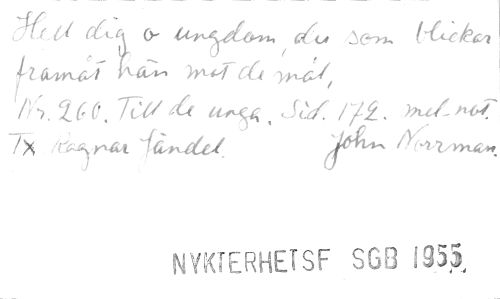 Hell dig o ungdom, du som blickar
framåt hän mot de mål,
Nr. 260. Till de unga. Sid. 172. mel-not.
Tx Ragnar Jändel. John Norrman.
NYKTERHETSF SGB 1955.